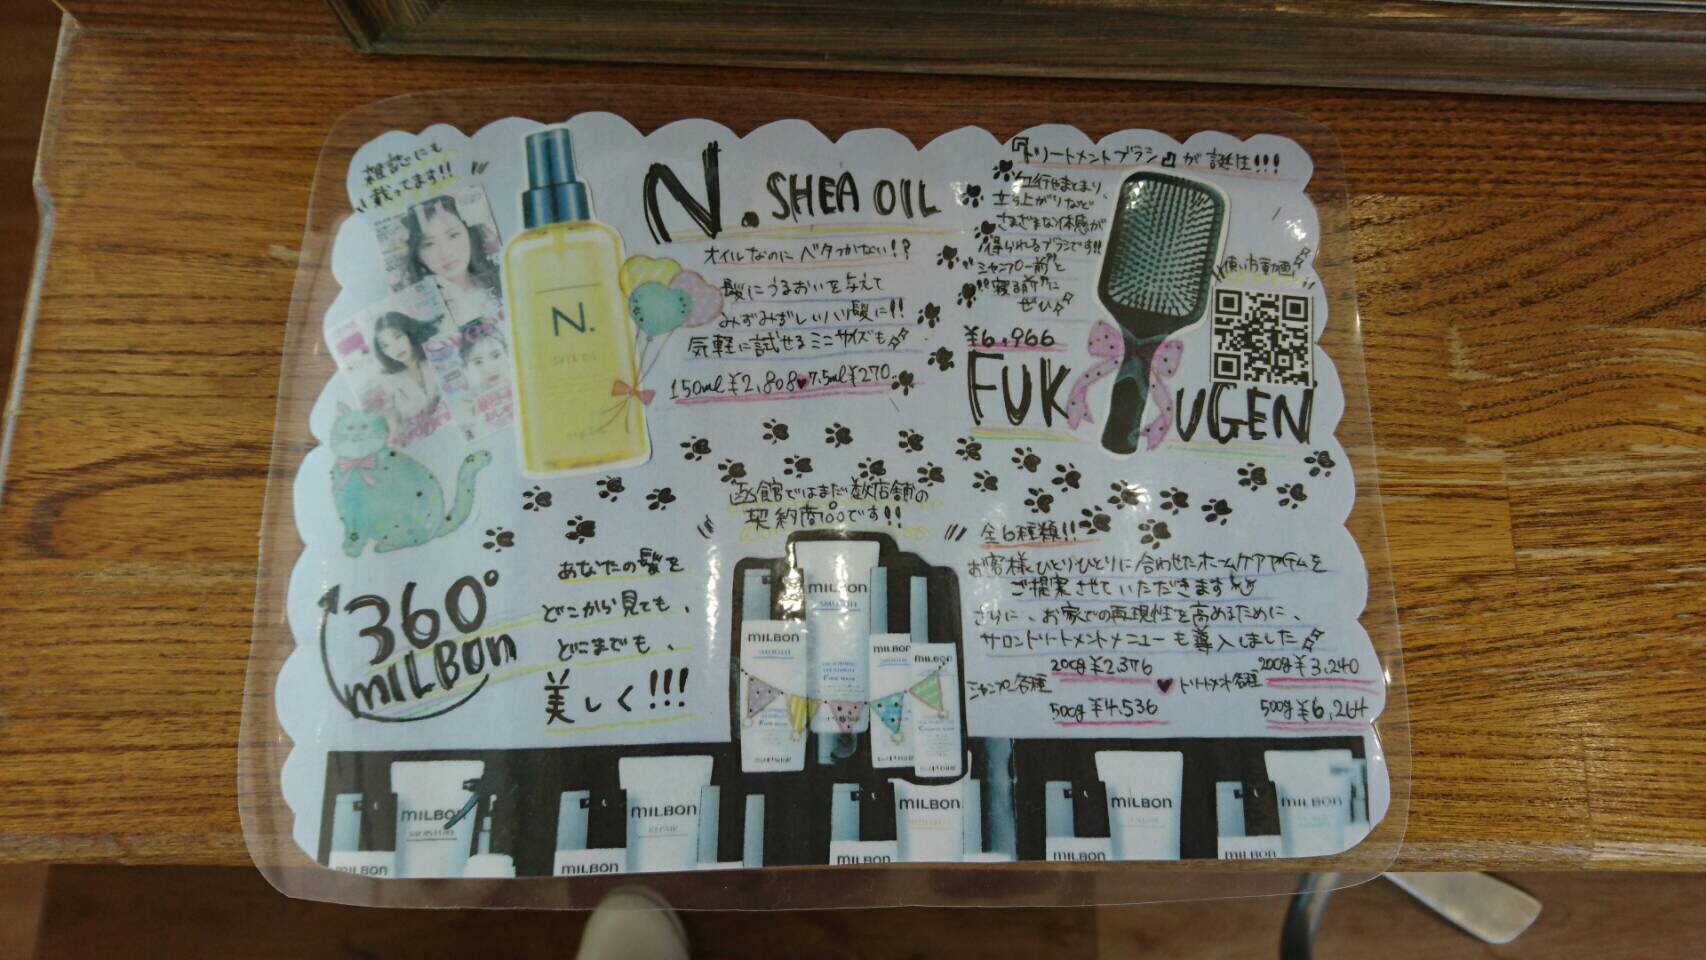 雑誌にも
載ってます!!
N.
SHEA OIL
N. SHEA OIL
オイルなのにベタつかない!?
髪にうるおいを与えて
みずみずしい髪に!!
気軽に試せるミニサイズも
150ml ¥2,808 ♥ 7.5ml ¥270
『トリートメントブラシ』が誕生!!!
血行やまとまり、
立ち上がりなど
さまざまな体感が
得られるブラシです!!
"シャンプー前"と
"寝る前"に
ぜひ
¥6,966
使い方動画
FUKUGEN
360°
MILBON
あなたの髪を
どこから見ても、
どこまでも、
美しく!!!
函館ではまだ数店舗の
契約商品です!!
MILBON
SMOOTH
MILBON
SMOOTH
MILBON
MILBON
全6種類!!
お客様ひとりひとりに合わせたホームケアアイテムを
ご提案させていただきます
さらに、お家での再現性を高めるために、
サロントリートメントメニューも導入しました
シャンプー各種 200g ¥2,376
500g ¥4,536
♥ トリートメント各種 200g ¥3,240
500g ¥6,264
MILBON
MOISTURE
MILBON
REPAIR
MILBON
MILBON
MILBON
MILBON
MILBON
MILBON
MILBON
MILBON